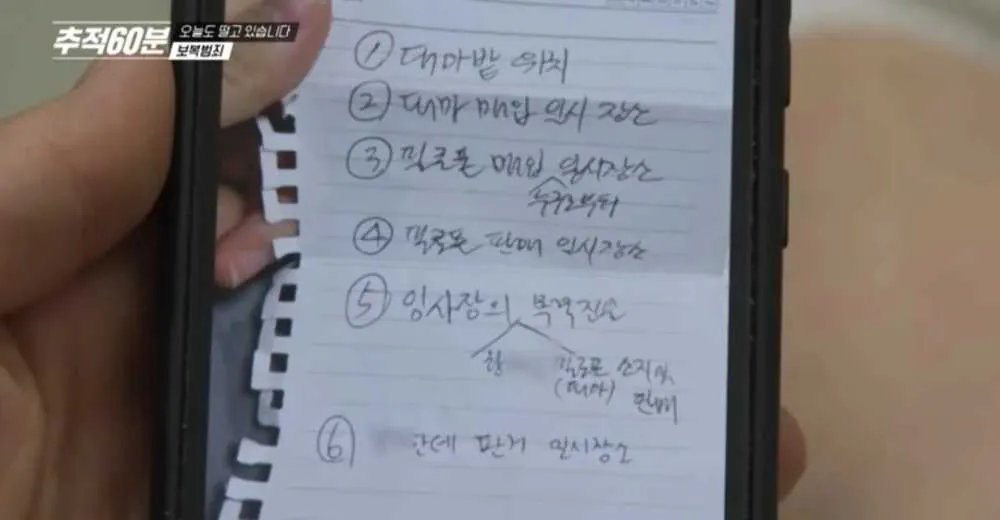 추적60분 오늘도 떨고 있습니다
보복범죄
① 대마밭 위치
② 대마 매입 일시 장소
③ 필로폰 매입 일시장소
누구로부터
④ 필로폰 판매 일시장소
⑤ 임사장의 목격진술
황 필로폰 소지 및
(대마) 판매
⑥ 한데 판거 일시장소